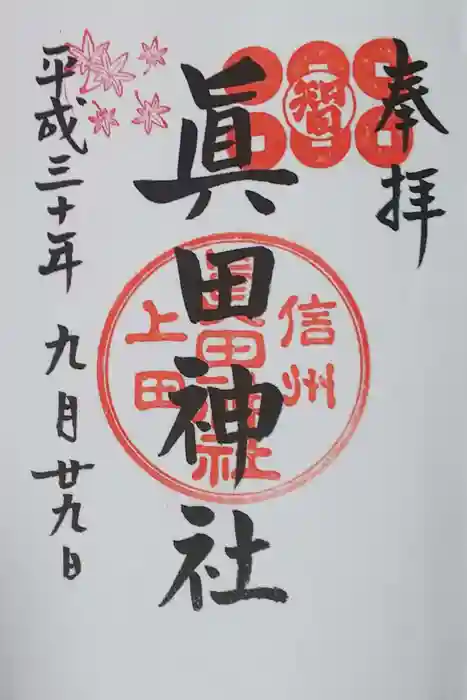 奉拝
智
眞田神社
信州
眞田神社
上田
平成三十年九月廿九日